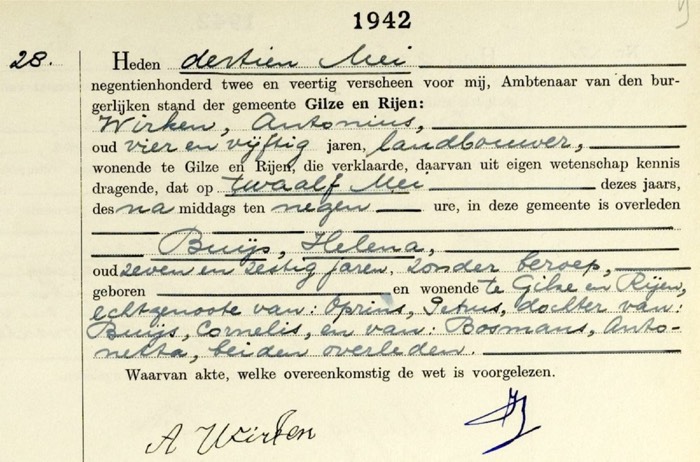 1942
28. Heden dertien Mei
negentienhonderd twee en veertig verscheen voor mij, Ambtenaar van den bur-
gerlijken stand der gemeente Gilze en Rijen:
Wirken, Antonius,
oud vier en vijftig jaren, landbouwer,
wonende te Gilze en Rijen, die verklaarde, daarvan uit eigen wetenschap kennis
dragende, dat op twaalf Mei dezes jaars,
des na middags ten negen ure, in deze gemeente is overleden
Buijs, Helena,
oud zeven en zestig jaren, zonder beroep,
geboren en wonende te Gilze en Rijen,
echtgenoote van: Oprins, Petrus, dochter van:
Buijs, Cornelis, en van: Bosmans, Anto-
netta, beiden overleden.
Waarvan akte, welke overeenkomstig de wet is voorgelezen.
A Wirken